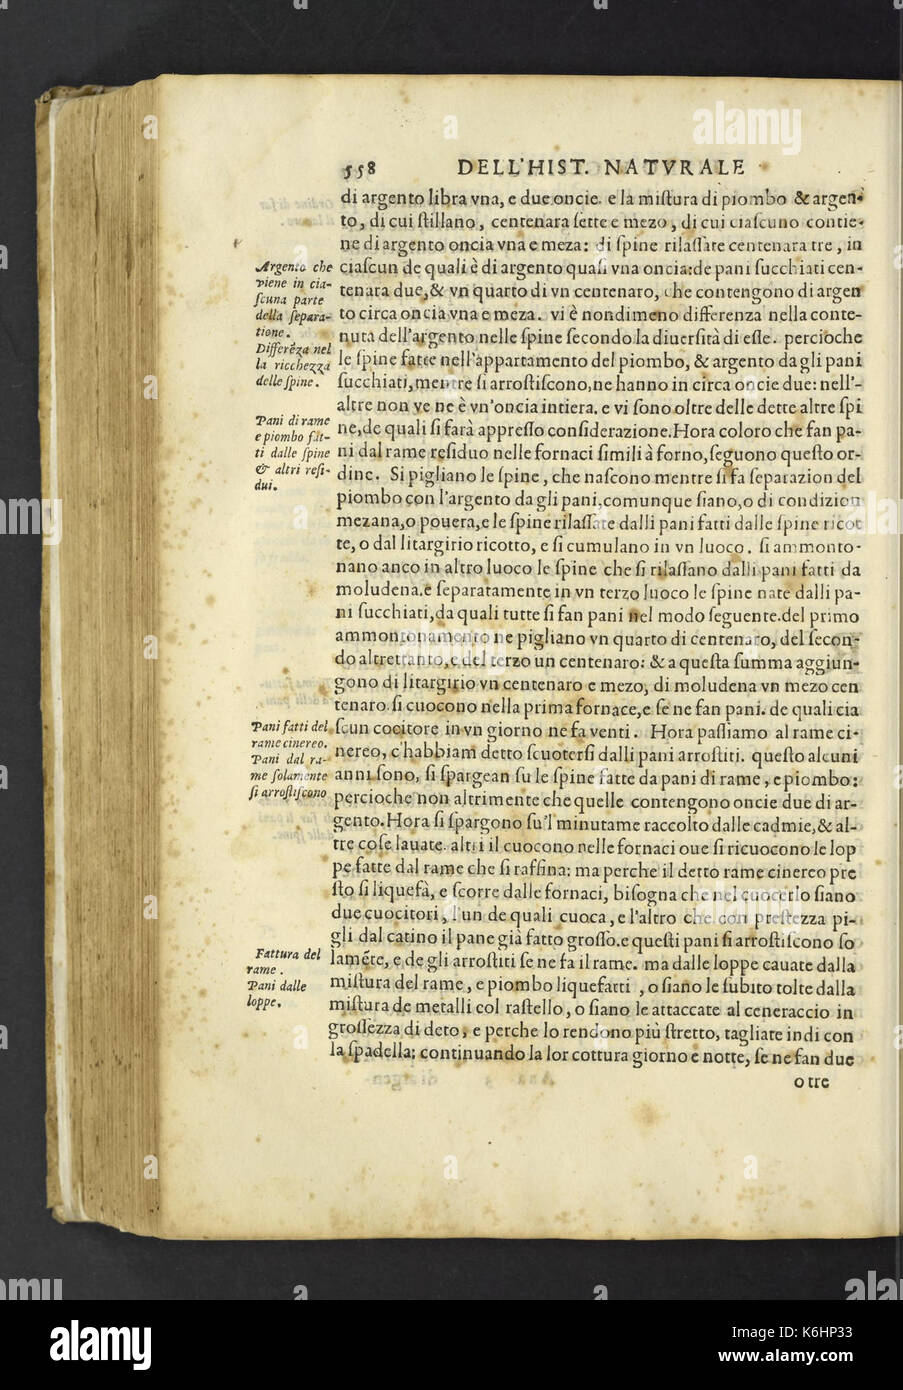 558 DELL'HIST. NATVRALE
di argento libra vna, e due oncie. e la miſtura di piombo & argen-
to, di cui ſtillano, centenara ſette e mezo, di cui ciaſcuno contie-
ne di argento oncia vna e meza: di ſpine rilaſſate centenara tre, in
Argento che
viene in cia-
ſcuna parte
della ſepara-
tione.
Differēza nel
la ricchezza
delle ſpine.
ciaſcun de quali è di argento quaſi vna oncia: de pani ſucchiati cen-
tenara due, & vn quarto di vn centenaro, che contengono di argen
to circa oncia vna e meza. vi è nondimeno differenza nella conte-
nuta dell'argento nelle ſpine ſecondo la diuerſità di eſſe. percioche
le ſpine fatte nell'appartamento del piombo, & argento da gli pani
ſucchiati, mentre ſi arroſtiſcono, ne hanno in circa oncie due: nell'-
altre non ve ne è vn'oncia intiera. e vi ſono oltre delle dette altre ſpi
Pani di rame
e piombo fat-
ti dalle ſpine
& altri reſi-
dui.
ne, de quali ſi farà appreſſo conſiderazione. Hora coloro che fan pa-
ni dal rame reſiduo nelle fornaci ſimili à forno, ſeguono queſto or-
dine. Si pigliano le ſpine, che naſcono mentre ſi fa ſeparazion del
piombo con l'argento da gli pani, comunque ſiano, o di condizion
mezana, o pouera, e le ſpine rilaſſate dalli pani fatti dalle ſpine ricot
te, o dal litargirio ricotto, e ſi cumulano in vn luoco. ſi ammonto-
nano anco in altro luoco le ſpine che ſi rilaſſano dalli pani fatti da
moludena. e ſeparatamente in vn terzo luoco le ſpine nate dalli pa-
ni ſucchiati, da quali tutte ſi fan pani nel modo ſeguente. del primo
ammontonamento ne pigliano vn quarto di centenaro, del ſecon-
do altrettanto, e del terzo un centenaro: & a queſta ſumma aggiun-
gono di litargirio vn centenaro e mezo, di moludena vn mezo cen
tenaro. ſi cuocono nella prima fornace, e ſe ne fan pani. de quali cia
Pani fatti del
rame cinereo.
Pani dal ra-
me ſolamente
ſi arroſtiſcono
ſcun cocitore in vn giorno ne fa venti. Hora paſſiamo al rame ci-
nereo, c'habbiam detto ſcuoterſi dalli pani arroſtiti. queſto alcuni
anni ſono, ſi ſpargean ſu le ſpine fatte da pani di rame, e piombo:
percioche non altrimente che quelle contengono oncie due di ar-
gento. Hora ſi ſpargono ſu'l minutame raccolto dalle cadmie, & al-
tre coſe lauate. altri il cuocono nelle fornaci oue ſi ricuocono le lop
pe fatte dal rame che ſi raffina: ma perche il detto rame cinereo pre
ſto ſi liquefà, e ſcorre dalle fornaci, biſogna che nel cuocerlo ſiano
due cuocitori, l'un de quali cuoca, e l'altro che con preſtezza pi-
gli dal catino il pane già fatto groſſo. e queſti pani ſi arroſtiſcono ſo
Fattura del
rame.
Pani dalle
loppe.
laméte, e de gli arroſtiti ſe ne fa il rame. ma dalle loppe cauate dalla
miſtura del rame, e piombo liquefatti, o ſiano le ſubito tolte dalla
miſtura de metalli col raſtello, o ſiano le attaccate al ceneraccio in
groſſezza di deto, e perche lo rendono più ſtretto, tagliate indi con
la ſpadella: continuando la lor cottura giorno e notte, ſe ne fan due
o tre
alamy
Image ID: K6HP33
www.alamy.com